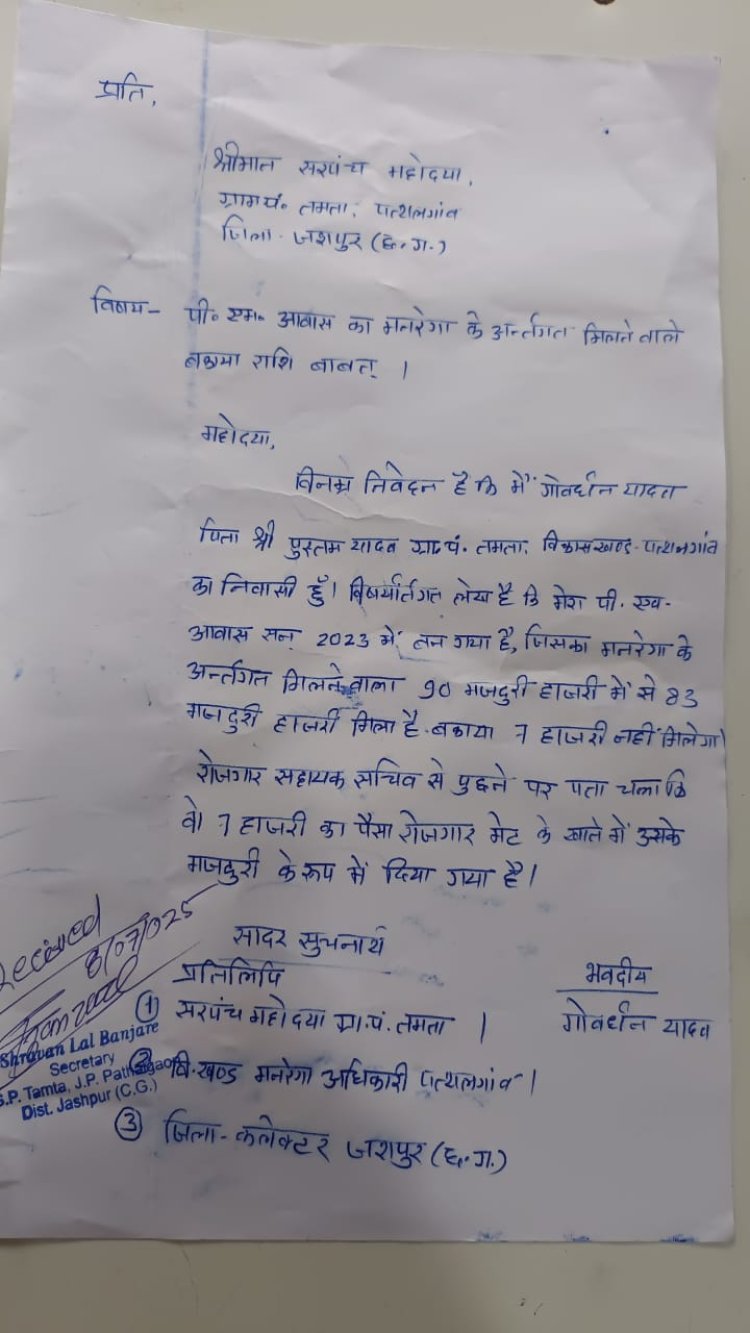 प्रति,
श्रीमान सरपंच महोदया,
ग्राम पं॰ तमता, पत्थलगांव
जिला - जशपुर (छ. ग.)
विषय - पी॰ एम॰ आवास का मनरेगा के अर्न्तगत मिलने वाले
बकाया राशि बाबत् ।
महोदया,
विनम्र निवेदन है कि मैं गोवर्धन यादव
पिता श्री पुस्तम यादव ग्रा. पं. तमता, विकासखण्ड - पत्थलगांव
का निवासी हूँ। विषयांर्तगत लेख है कि मेरा पी. एम.
आवास सन् 2023 में बन गया है, जिसका मनरेगा के
अर्न्तगत मिलने वाला 90 मजदुरी हाजरी में से 83
मजदुरी हाजरी मिला है. बकाया 7 हाजरी नहीं मिलेगा।
रोजगार सहायक सचिव से पुछने पर पता चला कि
वो 7 हाजरी का पैसा रोजगार मेट के खाते में उसके
मजदुरी के रूप में दिया गया है।
Received
8/07/025
सादर सुचनार्थ
प्रतिलिपि
भवदीय
गोवर्धन यादव
① सरपंच महोदया ग्रा. पं. तमता ।
Shravan Lal Banjare
Secretary
G.P. Tamta, J.P. Pathalgaon
Dist. Jashpur (C.G.)
② वि. खण्ड मनरेगा अधिकारी पत्थलगांव ।
③ जिला - कलेक्टर जशपुर (छ. ग.)